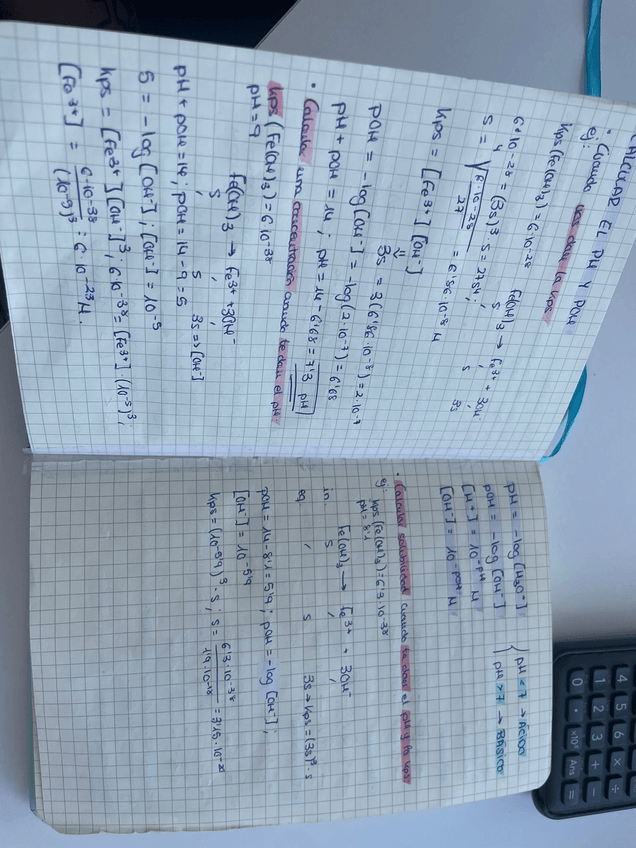 CALCULAR EL PH Y POH
• Cuando nos dan la Kps
ej:
Kps (Fe(OH)₃) = 6·10⁻²⁸
Fe(OH)₃ → Fe³⁺ + 3OH⁻
s s 3s
6·10⁻²⁸ = (3s)³·s = 27s⁴;
s = ⁴√(6·10⁻²⁸/27) = 6'86·10⁻⁸ M
Kps = [Fe³⁺][OH⁻]
3s = 3(6'86·10⁻⁸) = 2·10⁻⁷
pOH = -log[OH⁻] = -log(2·10⁻⁷) = 6'68
pH + pOH = 14; pH = 14 - 6'68 = 7'3 pH
• Calcular una concentración cuando te dan el pH
Kps (Fe(OH)₃) = 6·10⁻³⁸
pH = 9
Fe(OH)₃ → Fe³⁺ + 3OH⁻
s s 3s ⇒ [OH⁻]
pH + pOH = 14; pOH = 14 - 9 = 5
5 = -log[OH⁻]; [OH⁻] = 10⁻⁵
Kps = [Fe³⁺][OH⁻]³; 6·10⁻³⁸ = [Fe³⁺]·(10⁻⁵)³;
[Fe³⁺] = 6·10⁻³⁸/(10⁻⁵)³ : 6·10⁻²³ M.
pH = -log[H₃O⁺]
pOH = -log[OH⁻]
[H⁺] = 10⁻ᵖᴴ M
[OH⁻] = 10⁻ᵖᴼᴴ M
{ pH < 7 → ÁCIDO
pH > 7 → BÁSICO
• Calcular solubilidad cuando te dan el pH y la Kps
ej: Kps (Fe(OH)₃) = 6'3·10⁻³⁸
pH = 8'1
Fe(OH)₃ → Fe³⁺ + 3OH⁻
in. s
eq s 3s → Kps = (3s)³·s
pOH = 14 - 8'1 = 5'9; pOH = -log[OH⁻];
[OH⁻] = 10⁻⁵'⁹
Kps = (10⁻⁵'⁹)³·s; s = 6'3·10⁻³⁸/1'9·10⁻¹⁸ = 3'15·10⁻²⁰
4 5 6 × ÷
1 2 3 + −
0 · ×10ˣ Ans =